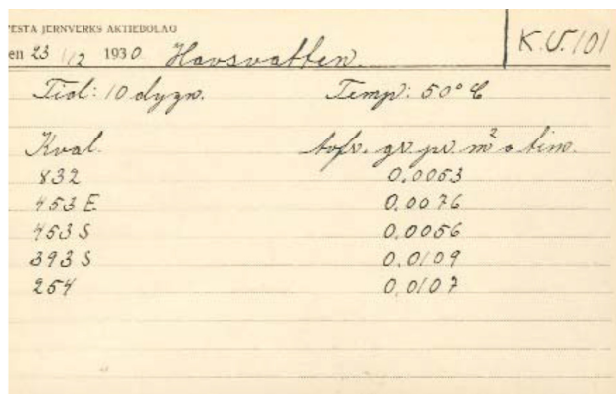 ESTA JERNVERKS AKTIEBOLAG
en 23/12 1930 Havsvatten.
K.V. 101
Tid: 10 dygn. Temp: 50° C
Kval. Avfr. gr. pr. m² o tim.
832 0.0053
453 E 0.0076
453 S 0.0056
393 S 0.0109
254 0.0107